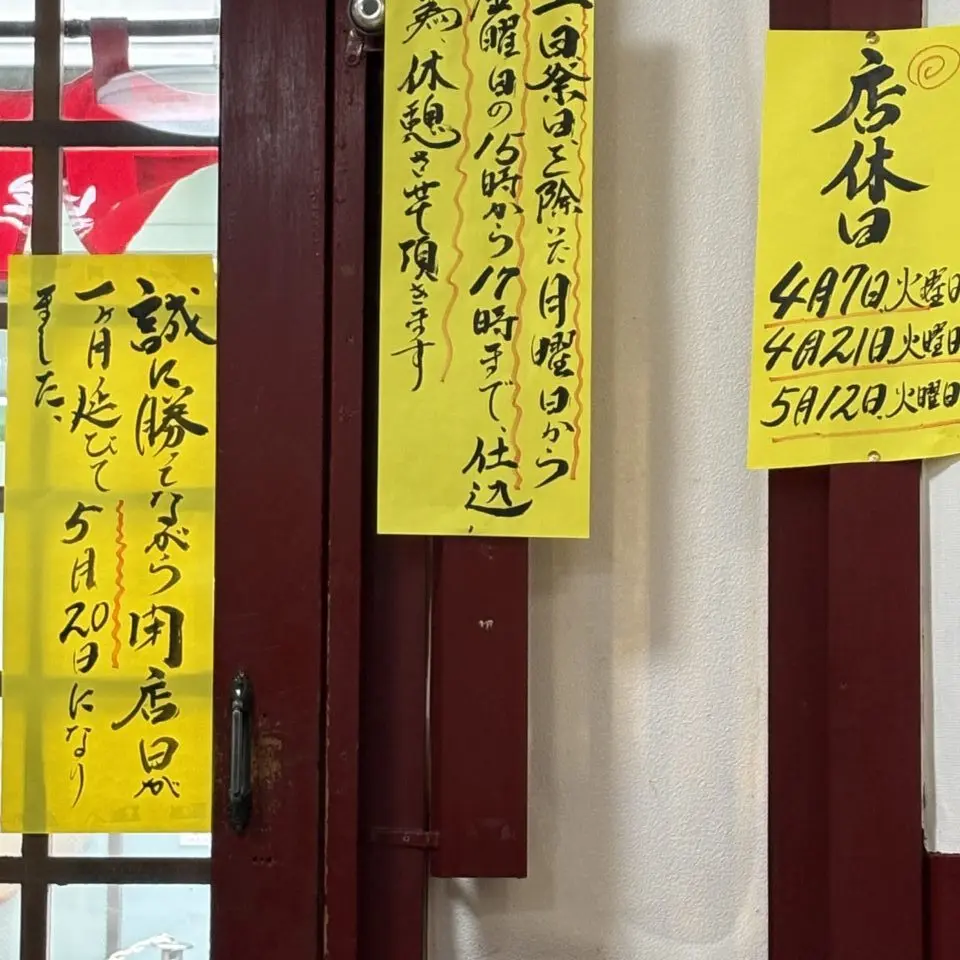 店休日
4月7日火曜日
4月21日火曜日
5月12日火曜日
日祭日を除いた月曜日から
金曜日の15時から17時まで、仕込
為、休憩させて頂きます
誠に勝手ながら閉店日が
一ヶ月延びて5月20日になり
ました、